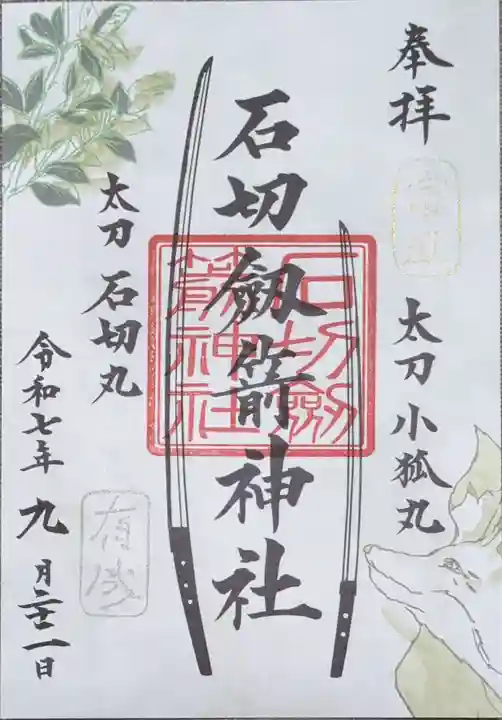 奉拝
太刀 小狐丸
石切劔箭神社
石切劔
箭神社
太刀 石切丸
令和七年 九月二十一日